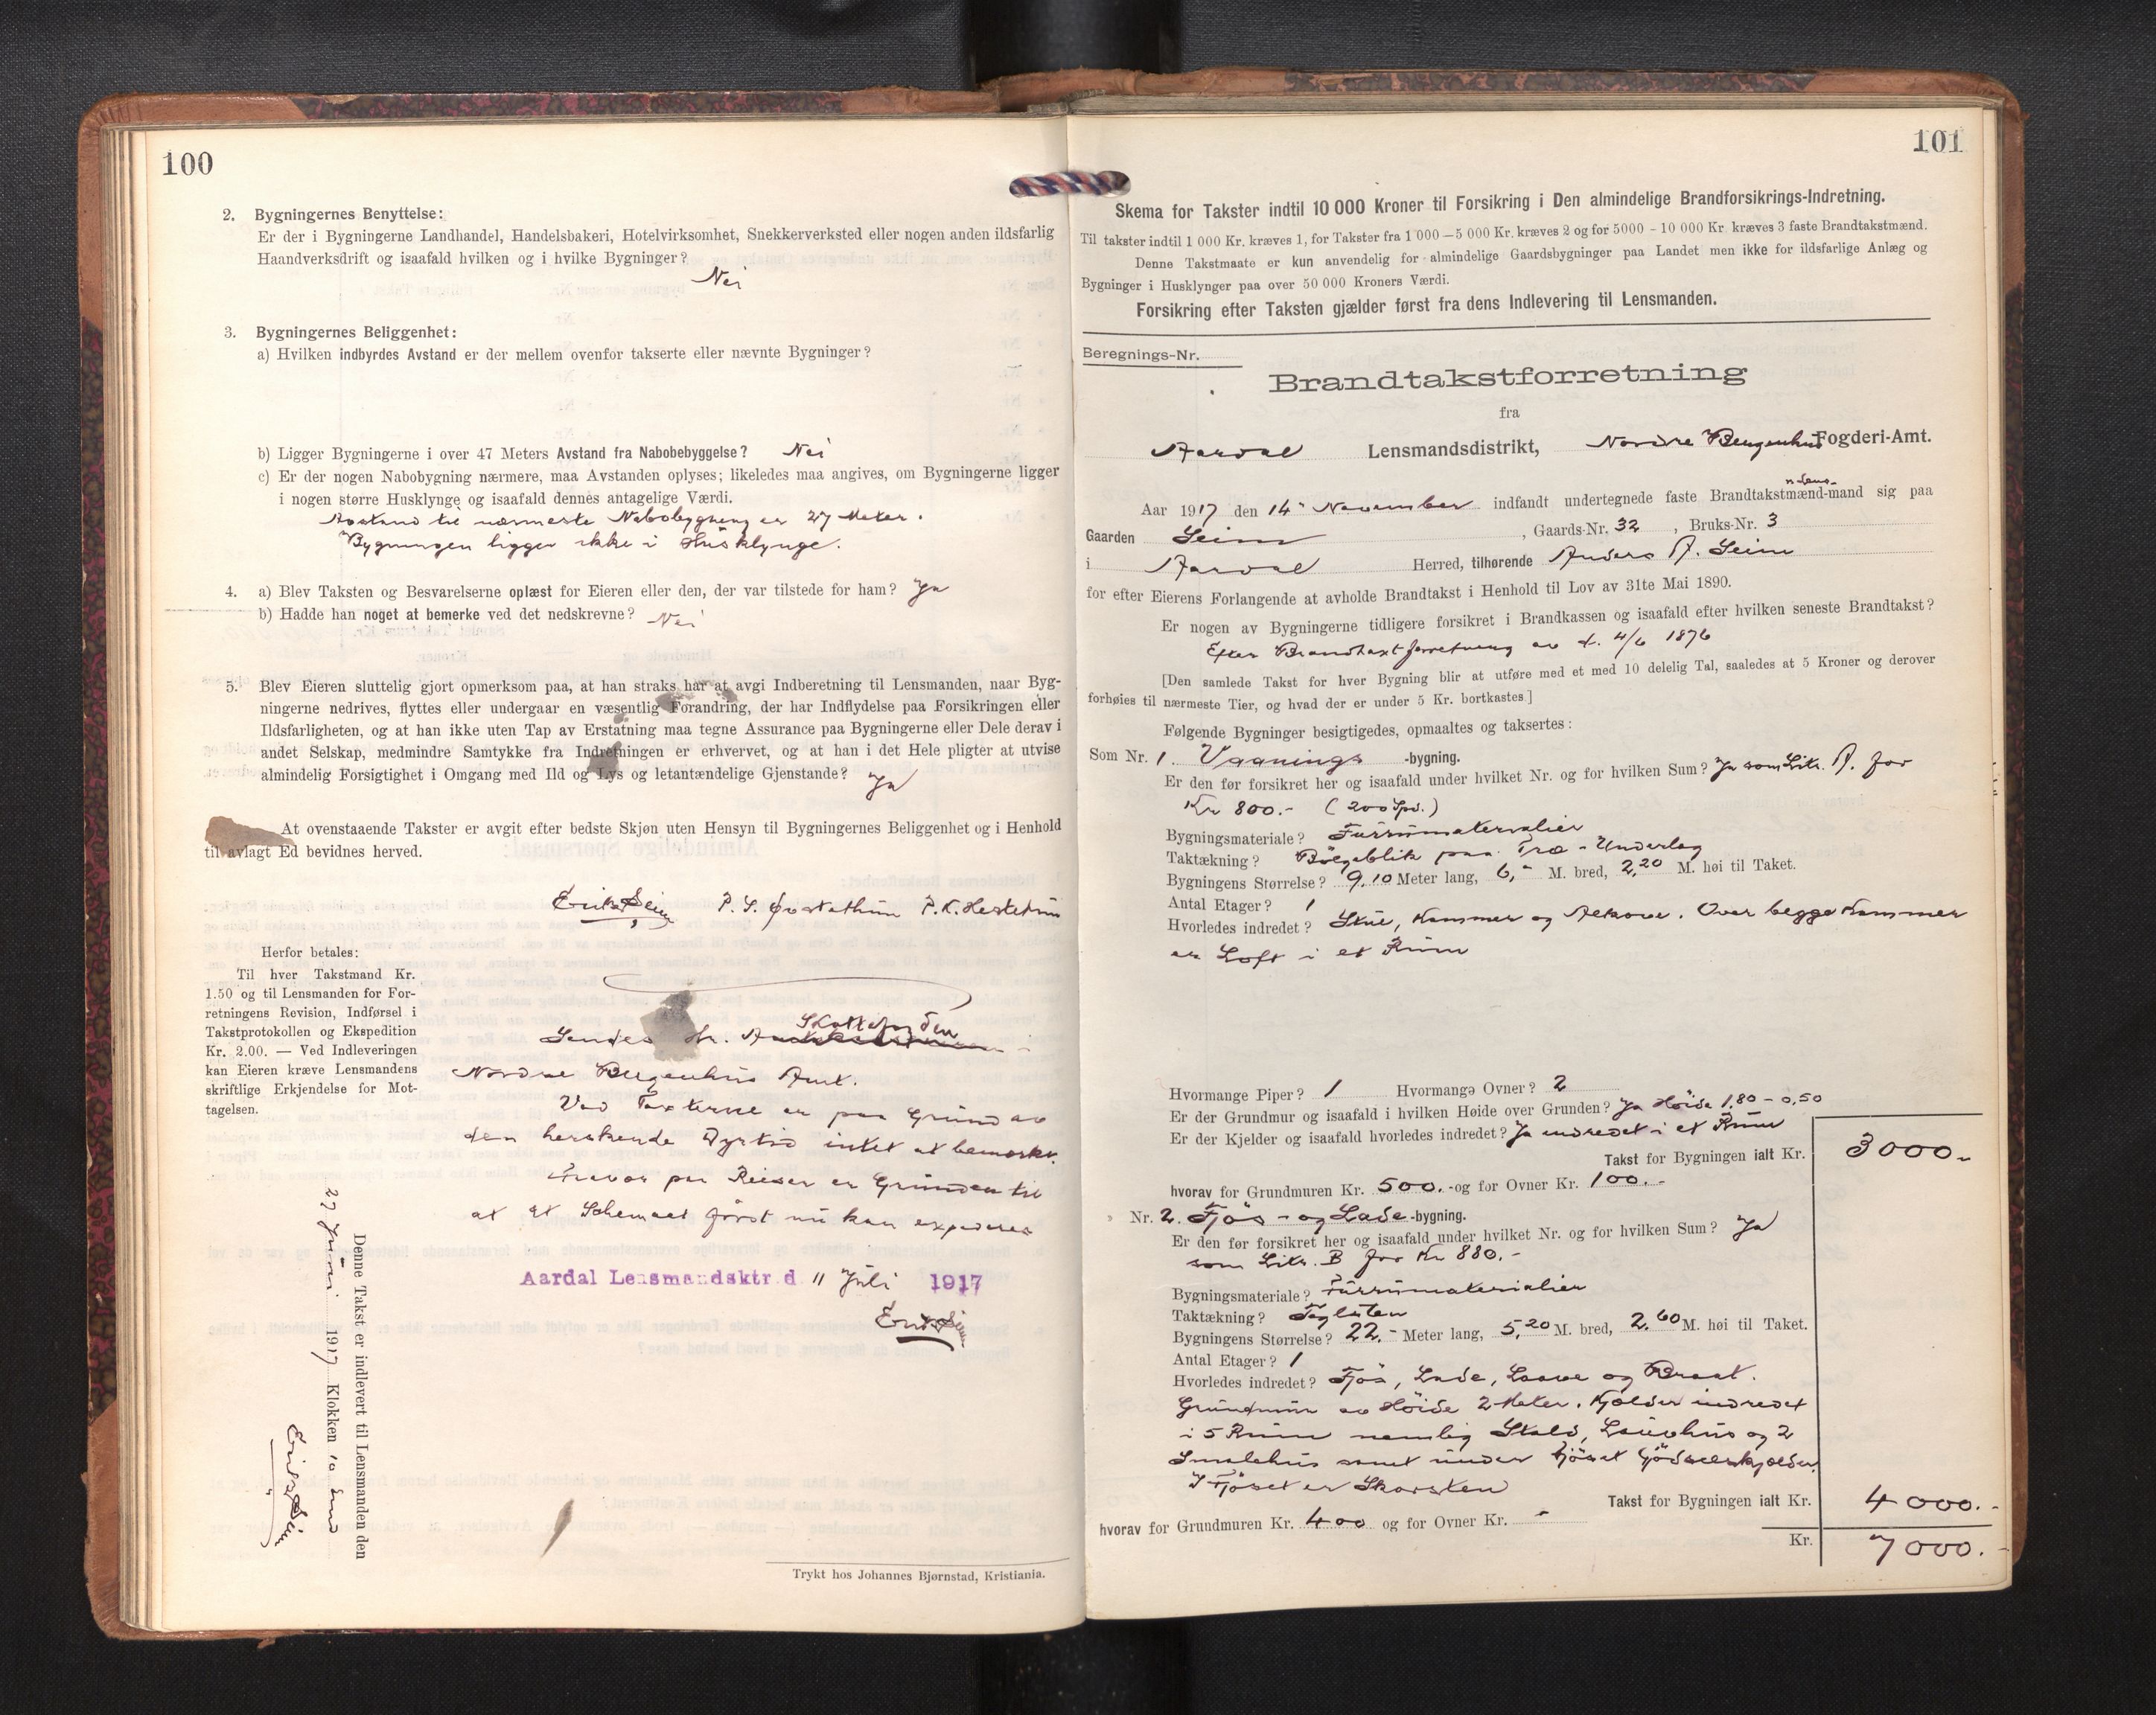 100
2. Bygningernes Benyttelse:
Er der i Bygningerne Landhandel, Handelsbakeri, Hotelvirksomhet, Snekkerverksted eller nogen anden ildsfarlig
Haandverksdrift og isaafald hvilken og i hvilke Bygninger?
Nei
3. Bygningernes Beliggenhet:
a) Hvilken indbyrdes Avstand er der mellem ovenfor takserte eller nævnte Bygninger?
b) Ligger Bygningerne i over 47 Meters Avstand fra Nabobebyggelse? Nei
c) Er der nogen Nabobygning nærmere, maa Avstanden oplyses; likeledes maa angives, om Bygningerne ligger
i nogen større Husklynge og isaafald dennes antagelige Værdi.
Avstand til nærmeste Nabobygning er 27 Meter.
Bygningen ligger ikke i Husklynge.
4. a) Blev Taksten og Besvarelserne oplæst for Eieren eller den, der var tilstede for ham? Ja
b) Hadde han noget at bemerke ved det nedskrevne? Nei
5. Blev Eieren sluttelig gjort opmerksom paa, at han straks har at avgi Indberetning til Lensmanden, naar Byg-
ningerne nedrives, flyttes eller undergaar en væsentlig Forandring, der har Indflydelse paa Forsikringen eller
Ildsfarligheten, og at han ikke uten Tap av Erstatning maa tegne Assurance paa Bygningerne eller Dele derav i
andet Selskap, medmindre Samtykke fra Indretningen er erhvervet, og at han i det Hele pligter at utvise
almindelig Forsigtighet i Omgang med Ild og Lys og letantændelige Gjenstande? Ja
At ovenstaaende Takster er avgit efter bedste Skjøn uten Hensyn til Bygningernes Beliggenhet og i Henhold
til avlagt Ed bevidnes herved.
Erik Seim P. S. P. K. Hestetun
Herfor betales:
Til hver Takstmand Kr.
1.50 og til Lensmanden for For-
retningens Revision, Indførsel i
Takstprotokollen og Ekspedition
Kr. 2.00. — Ved Indleveringen
kan Eieren kræve Lensmandens
skriftlige Erkjendelse for Mot-
tagelsen.
Skattefogden
Sendes Hr. i
Nordre Bergenhus Amt.
Ved Taxterne er paa Grund av
den herskende Dyrtid intet at bemærke.
Fravær paa Reiser er Grunden til
at at Schemaet først nu kan expederes
Aardal Lensmandsktr d. 11 Juli 1917
Erik Seim
Denne Takst er indlevert til Lensmanden den
27 Juni 1917 Klokken 10
Erik Seim
Trykt hos Johannes Bjørnstad, Kristiania.
101
Skema for Takster indtil 10 000 Kroner til Forsikring i Den almindelige Brandforsikrings-Indretning.
Til takster indtil 1 000 Kr. kræves 1, for Takster fra 1 000—5 000 Kr. kræves 2 og for 5000 - 10 000 Kr. kræves 3 faste Brandtakstmænd.
Denne Takstmaate er kun anvendelig for almindelige Gaardsbygninger paa Landet men ikke for ildsfarlige Anlæg og
Bygninger i Husklynger paa over 50 000 Kroners Værdi.
Forsikring efter Taksten gjælder først fra dens Indlevering til Lensmanden.
Beregnings-Nr.
Brandtakstforretning
fra
Aardal Lensmandsdistrikt, Nordre Bergenhus Fogderi-Amt.
Aar 1917 den 14- November indfandt undertegnede faste Brandtakstmænd n Lens- -mand sig paa
Gaarden Seim, Gaards-Nr. 32, Bruks-Nr. 3
i Aardal Herred, tilhørende Anders A. Seim
for efter Eierens Forlangende at avholde Brandtakst i Henhold til Lov av 31te Mai 1890.
Er nogen av Bygningerne tidligere forsikret i Brandkassen og isaafald efter hvilken seneste Brandtakst?
Efter Brandtaxtforretning av d. 4/6 1876
[Den samlede Takst for hver Bygning blir at utføre med et med 10 delelig Tal, saaledes at 5 Kroner og derover
forhøies til nærmeste Tier, og hvad der er under 5 Kr. bortkastes.]
Følgende Bygninger besigtigedes, opmaaltes og taksertes:
Som Nr. 1. Vaanings -bygning.
Er den før forsikret her og isaafald under hvilket Nr. og for hvilken Sum? Ja som Litr. A. for
Kr 800.- (200 Spd.)
Bygningsmateriale? Furumaterialier
Taktækning? Bølgeblik paa Træ-Underlag
Bygningens Størrelse? 9,10 Meter lang, 6,- M. bred, 2,20 M. høi til Taket.
Antal Etager? 1
Hvorledes indredet? Stue, Kammer og Alkove. Over begge Kammer
er Loft i et Rum
Hvormange Piper? 1 Hvormange Ovner? 2
Er der Grundmur og isaafald i hvilken Høide over Grunden? Ja Høide 1,80 - 0,50
Er der Kjelder og isaafald hvorledes indredet? Ja indredet i et Rum
Takst for Bygningen ialt Kr. 3000.-
hvorav for Grundmuren Kr. 500.- og for Ovner Kr. 100.-
Nr. 2. Fjøs- og Lade -bygning.
Er den før forsikret her og isaafald under hvilket Nr. og for hvilken Sum? Ja
som Litr. B for Kr 880.-
Bygningsmateriale? Furumaterialier
Taktækning? Taglsten
Bygningens Størrelse? 22.- Meter lang, 5,20 M. bred, 2,60 M. høi til Taket.
Antal Etager? 1
Hvorledes indredet? Fjøs, Lade, Laave og Braat.
Grundmur av Høide 2 Meter. Kjælder indredet
i 5 Rum nemlig Stald, Løuvhus og 2
Smalehus samt under Fjøset Gjødselskjælder.
I Fjøset er Skorsten
Takst for Bygningen ialt Kr. 4000.-
hvorav for Grundmuren Kr. 400 og for Ovner Kr. -
Kr. 7000.-